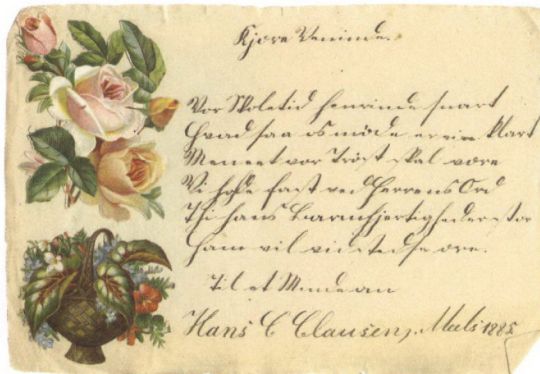 Kjære Veninde.
Vor Skoletid henrinde snart
Hvad saa os möde er ei klart
Men eet vor Tröst skal være
Vi holde fast ved Herrens Ord
Thi hans Barmhjertighed er stor
Ham vil vi stedse ære.
Til et Minde om
Hans C Clausen, Mals 1885